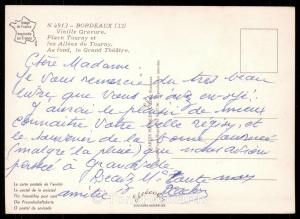 N 4913 - BORDEAUX (33)
Vieille Gravure.
Place Tourny et
les Allées de Tourny.
Au fond, le Grand Théâtre.
Chère Madame.
Je vous remercie du très beau
livre que vous m'avez envoyé.
J'aurai le plaisir de mieux
connaître votre belle région et
le souvenir de la bonne journée
(malgré la pluie) que nous avions
passée à
amitié
La carte postale de l'amitié
La postal de la amistad
The friendship post card
Die Freundschaftskarte
O postal de amizade